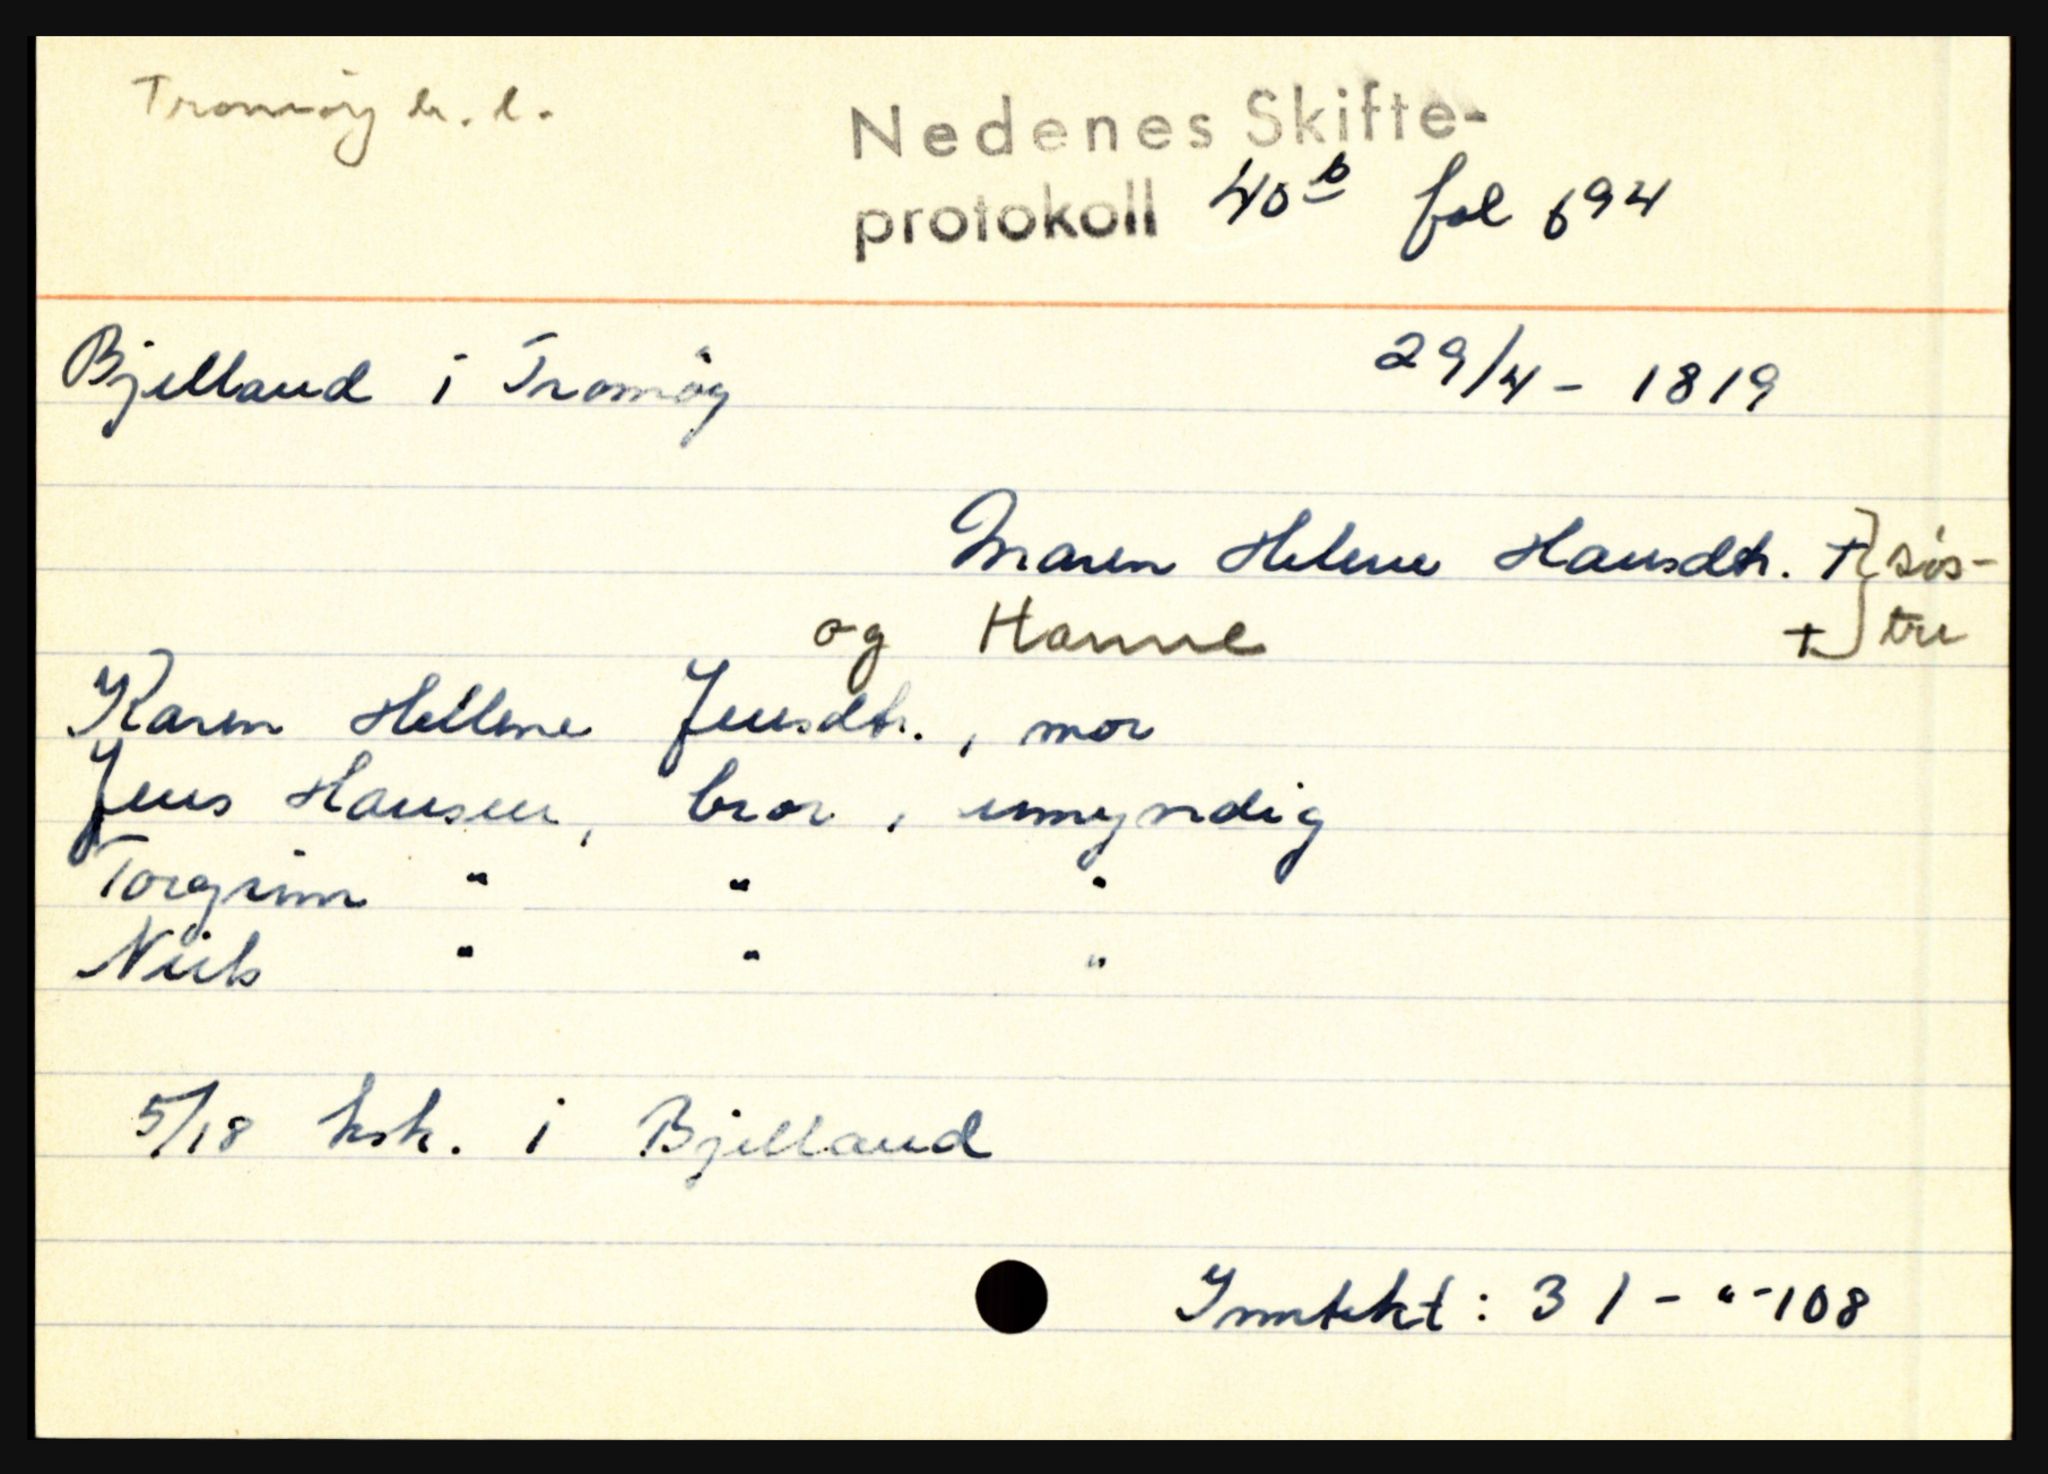 Tromöy h. l.
Nedenes Skifte-
protokoll 40 b fol 694
Bjelland i Tromöy 29/4 - 1819
Maren Helene Hansdtr. + } sös-
og Hanne + } tre
Karen Helene Jensdtr., mor
Jens Hansen, bror, umyndig
Torgrim " " "
Niels " " "
5/18 hsk. i Bjelland
Inntekt : 31 - " - 108